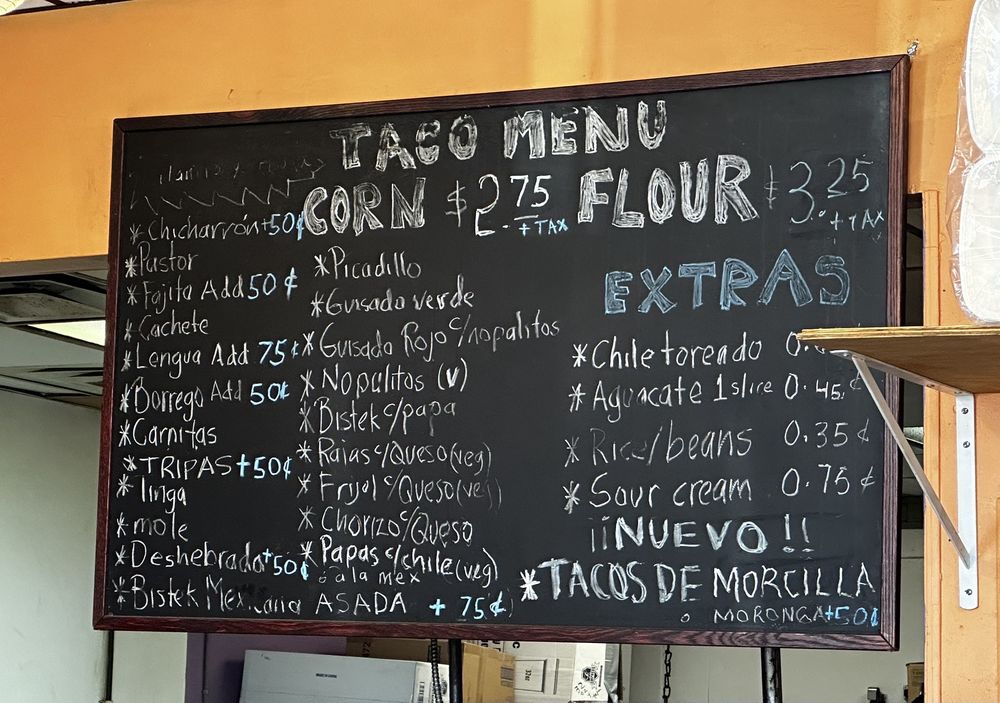 TACO MENU
CORN $2.75 + TAX FLOUR $3.25 + TAX
* Chicharrón +50¢
* Pastor
* Fajita Add 50¢
* Cachete
* Lengua Add 75¢
* Borrego Add 50¢
* Carnitas
* TRIPAS +50¢
* Tinga
* mole
* Deshebrada +50¢
* Bistek ASADA + 75¢
* Picadillo
* Guisado verde
* Guisado Rojo c/nopalitos
* Nopalitos (v)
* Bistek c/papa
* Rajas c/Queso (veg)
* Frijol c/Queso (veg)
* Chorizo c/Queso
* Papas c/chile (veg)
ó a la mex
EXTRAS
* Chile toreado
* Aguacate 1 slice 0.45¢
* Rice/beans 0.35¢
* Sour cream 0.75¢
¡¡NUEVO!!
* TACOS DE MORCILLA
ó MORONGA +50¢